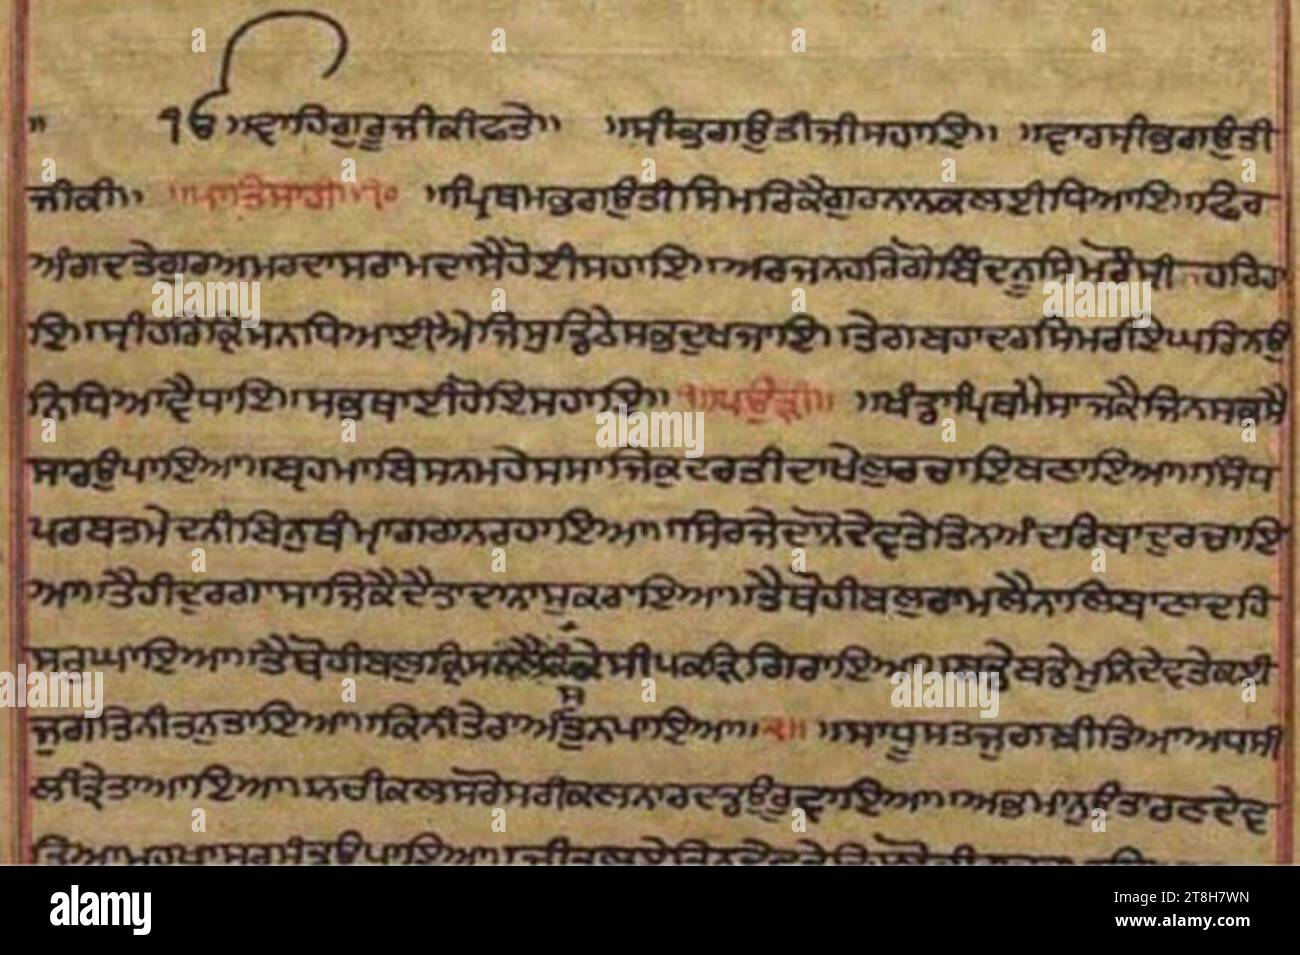 ॥ ੴ ॥ਵਾਹਿਗੁਰੂਜੀਕੀਫਤੇ॥ ॥ਸੀਭਗਉਤੀਜੀਸਹਾਇ॥ ॥ਵਾਰਸੀਭਗਉਤੀ
ਜੀਕੀ॥ ॥ਪਾਤਿਸਾਹੀ॥੧੦ ॥ਪ੍ਰਿਥਮਭਗਉਤੀਸਿਮਰਿਕੈਗੁਰਨਾਨਕਲਈਧਿਆਇ॥ਫਿਰ
ਅੰਗਦਤੇਗੁਰਅਮਰਦਾਸਰਾਮਦਾਸੈਹੋਈਸਹਾਇ॥ਅਰਜਨਹਰਿਗੋਬਿੰਦਨੂਸਿਮਰੌਸੀ ਹਰਿਰਾ
ਇ॥ਸ੍ਰੀਹਰਿਕ੍ਰਿਸਨਧਿਆਈਐਜਿਸੁਡਿਠੇਸਭੁਦੁਖਜਾਇ॥ਤੇਗਬਹਾਦਰਸਿਮਰਿਇਘਰਿਨਉ
ਨਿਧਿਆਵੈਧਾਇ॥ਸਭਥਾਈਹੋਇਸਹਾਇ॥ ॥ਪਉੜੀ॥ ॥ਖੰਡਾਪ੍ਰਿਥਮੈਸਾਜਕੈਜਿਨਸਭਸੈ
ਸਾਰਉਪਾਇਆ॥ਬ੍ਰਹਮਾਬਿਸਨਮਹੇਸਸਾਜਿਕੁਦਰਤੀਦਾਖੇਲੁਰਚਾਇਬਣਾਇਆ॥ਸਿੰਧ
ਪਰਬਤਮੇਦਨੀਬਿਨੁਥੰਮ੍ਹਾਗਗਨਰਹਾਇਆ॥ਸਿਰਜੇਦਾਨੋਦੇਵਤੇਤਿਨਅੰਦਰਿਬਾਦੁਰਚਾਇ
ਆ॥ਤੈਹੀਦੁਰਗਾਸਾਜਿਕੈਦੈਤਾਦਾਨਾਸੁਕਰਾਇਆ॥ਤੈਥੋਹੀਬਲੁਰਾਮਲੈਨਾਲਿਬਾਣਾਦਹਿ
ਸਰੁਘਾਇਆ॥ਤੈਥੋਹੀਬਲੁਕ੍ਰਿਸਨਲੈਕੰਸੁਕੇਸੀਪਕੜਿਗਿਰਾਇਆ॥ਬਡੇਬਡੇਮੁਨਿਦੇਵਤੇਕਈ
ਜੁਗਤਿਨੀਤਨੁਤਾਇਆ॥ਕਿਨੀਤੇਰਾਅੰਤੁਨਪਾਇਆ॥੨॥ ॥ਸਾਧੂਸਤਜੁਗਬੀਤਿਆਅਧਸੀ
ਲੀਤ੍ਰੇਤਾਆਇਆ॥ਨਚੀਕਲਸਰੋਸਰੀਕਲਨਾਰਦਡਉਰੂਵਾਇਆ॥ਅਭਮਾਨੁਉਤਾਰਣਦੇਵ
alamy
Image ID: 2T8H7WN
www.alamy.com